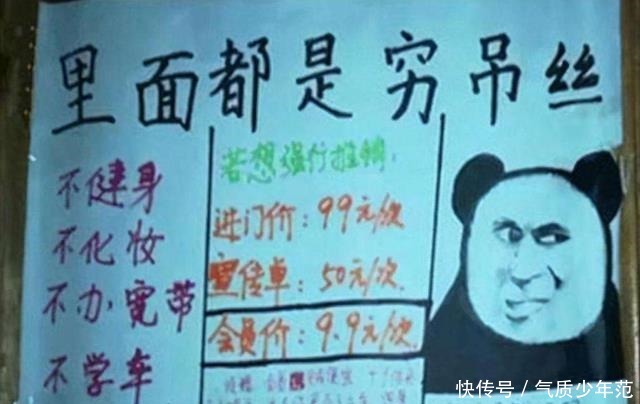 里面都是穷吊丝
不健身
不化妆
不办宽带
不学车
若想强行推销:
进门价:99元/次
宣传单:50元/次
会员价:9.9元/次
快传号/气质少年范